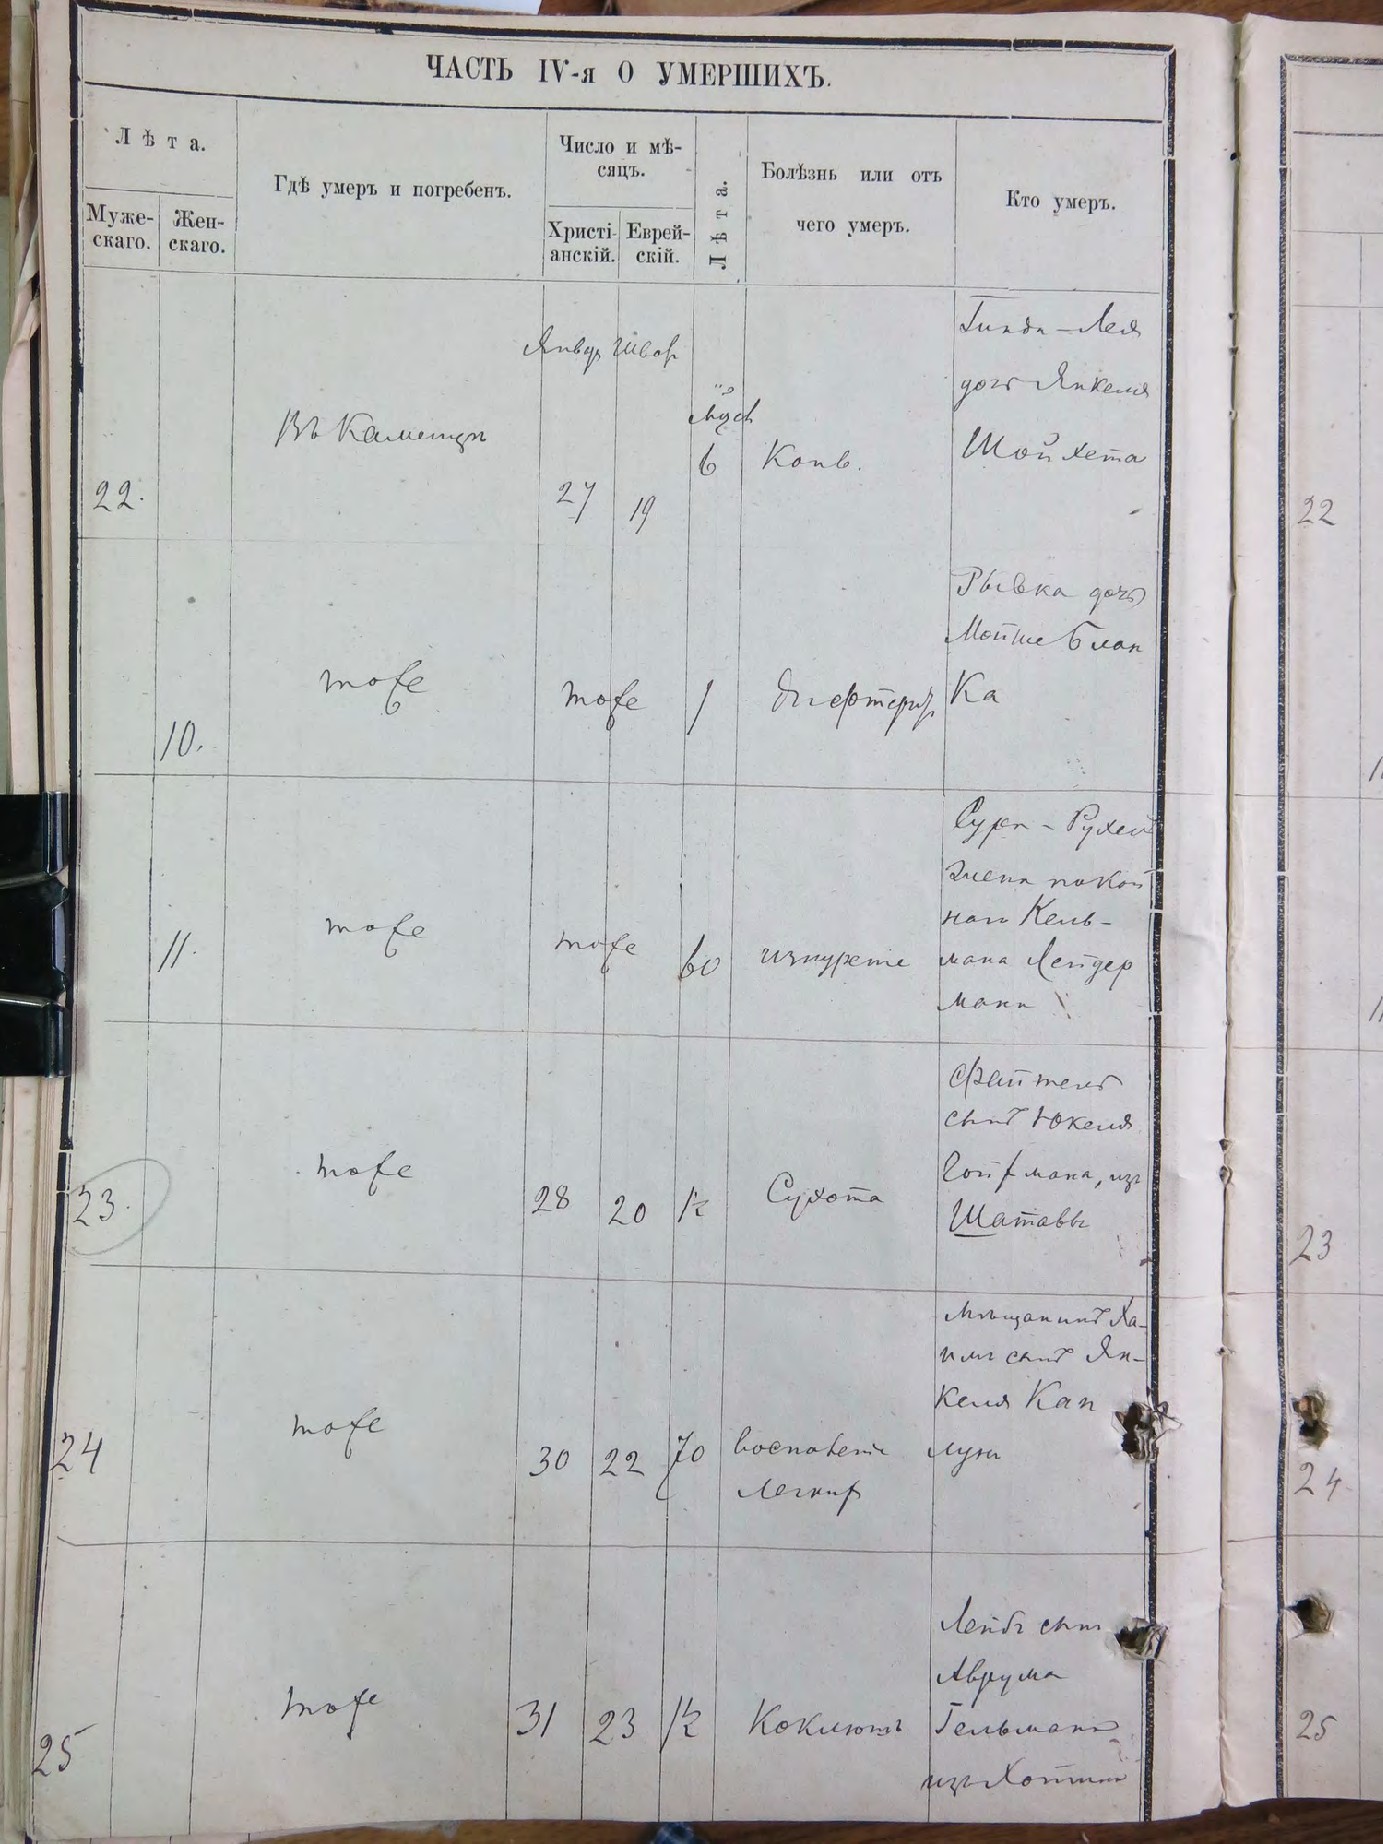 ЧАСТЬ IV-я О УМЕРШИХЪ.
Лѣта.
Муже-
скаго.
Жен-
скаго.
Гдѣ умеръ и погребенъ.
Число и мѣ-
сяцъ.
Христі-
анскій.
Еврей-
скій.
Лѣта.
Болѣзнь или отъ
чего умеръ.
Кто умеръ.
22.
Въ Каменцѣ
27
19
6
Конв.
дочь Янкеля
Шойхета
10.
тоже
тоже
1
Рывка дочь
Мойше Блан
ка
11.
тоже
тоже
60
Сура - Рухля
жена покой
наго Кель-
мана Лейдер
мана
23.
тоже
28
20
½
Сухота
сынъ Юкеля
Гойхмана, изъ
Шатавы
24
тоже
30
22
70
воспаленіе
легкихъ
мѣщанинъ Ха-
имъ сынъ Ян-
келя Кап
луна
25
тоже
31
23
½
Коклюшъ
Лейбъ сынъ
Аврума
Гельмана
изъ Хотина
22
23
24
25